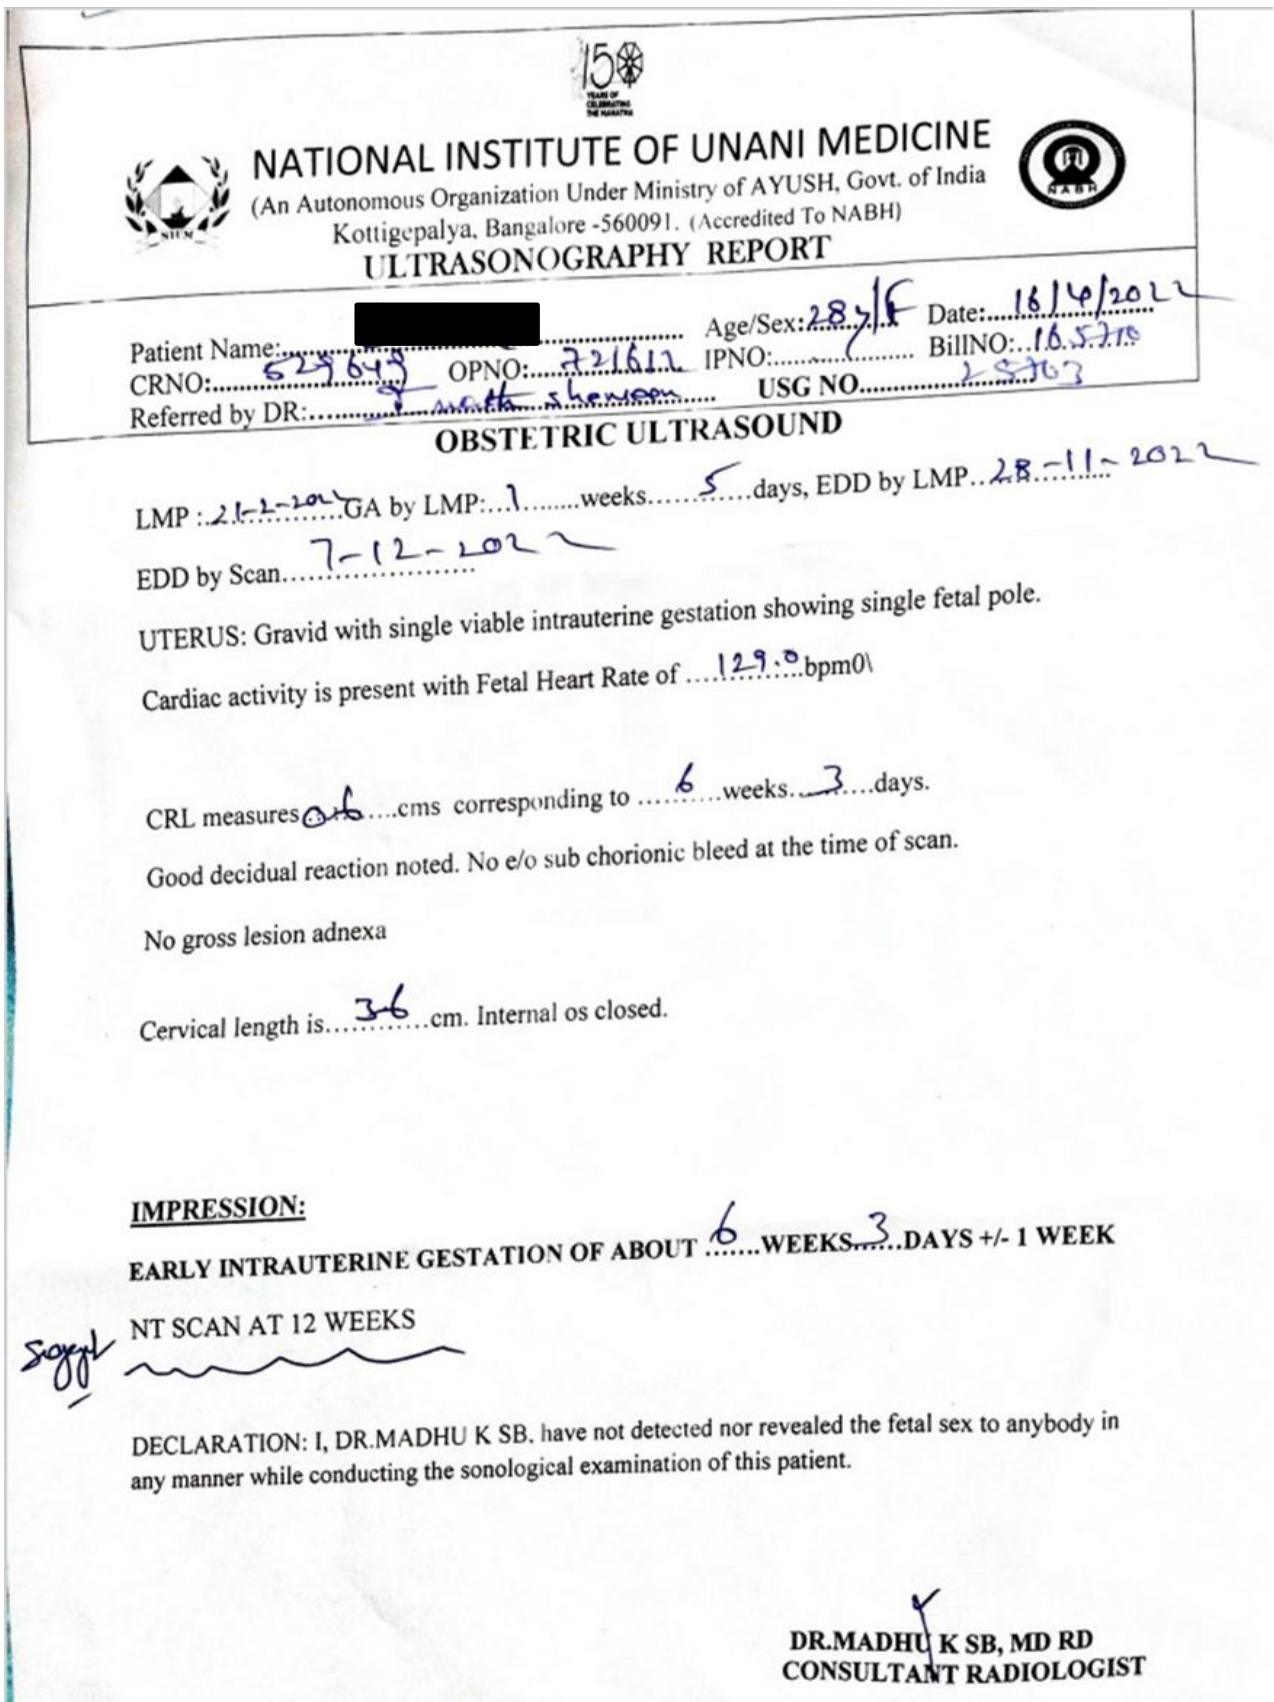 150
YEARS OF
CELEBRATING
THE MAHATMA
NATIONAL INSTITUTE OF UNANI MEDICINE
(An Autonomous Organization Under Ministry of AYUSH, Govt. of India
Kottigepalya, Bangalore -560091. (Accredited To NABH)
NIUM
NABH
ULTRASONOGRAPHY REPORT
Patient Name: Age/Sex: 28y/F Date: 16/4/2022
CRNO: 529649 OPNO: 721612 IPNO: BillNO:
Referred by DR: USG NO.
OBSTETRIC ULTRASOUND
LMP : 21-2-2022 GA by LMP: 7 weeks 5 days, EDD by LMP 28-11-2022
EDD by Scan 7-12-2022
UTERUS: Gravid with single viable intrauterine gestation showing single fetal pole.
Cardiac activity is present with Fetal Heart Rate of 129.0 bpm0\
CRL measures 0.6 cms corresponding to 6 weeks 3 days.
Good decidual reaction noted. No e/o sub chorionic bleed at the time of scan.
No gross lesion adnexa
Cervical length is 3.6 cm. Internal os closed.
IMPRESSION:
EARLY INTRAUTERINE GESTATION OF ABOUT 6 WEEKS 3 DAYS +/- 1 WEEK
NT SCAN AT 12 WEEKS
DECLARATION: I, DR.MADHU K SB. have not detected nor revealed the fetal sex to anybody in
any manner while conducting the sonological examination of this patient.
DR.MADHU K SB, MD RD
CONSULTANT RADIOLOGIST